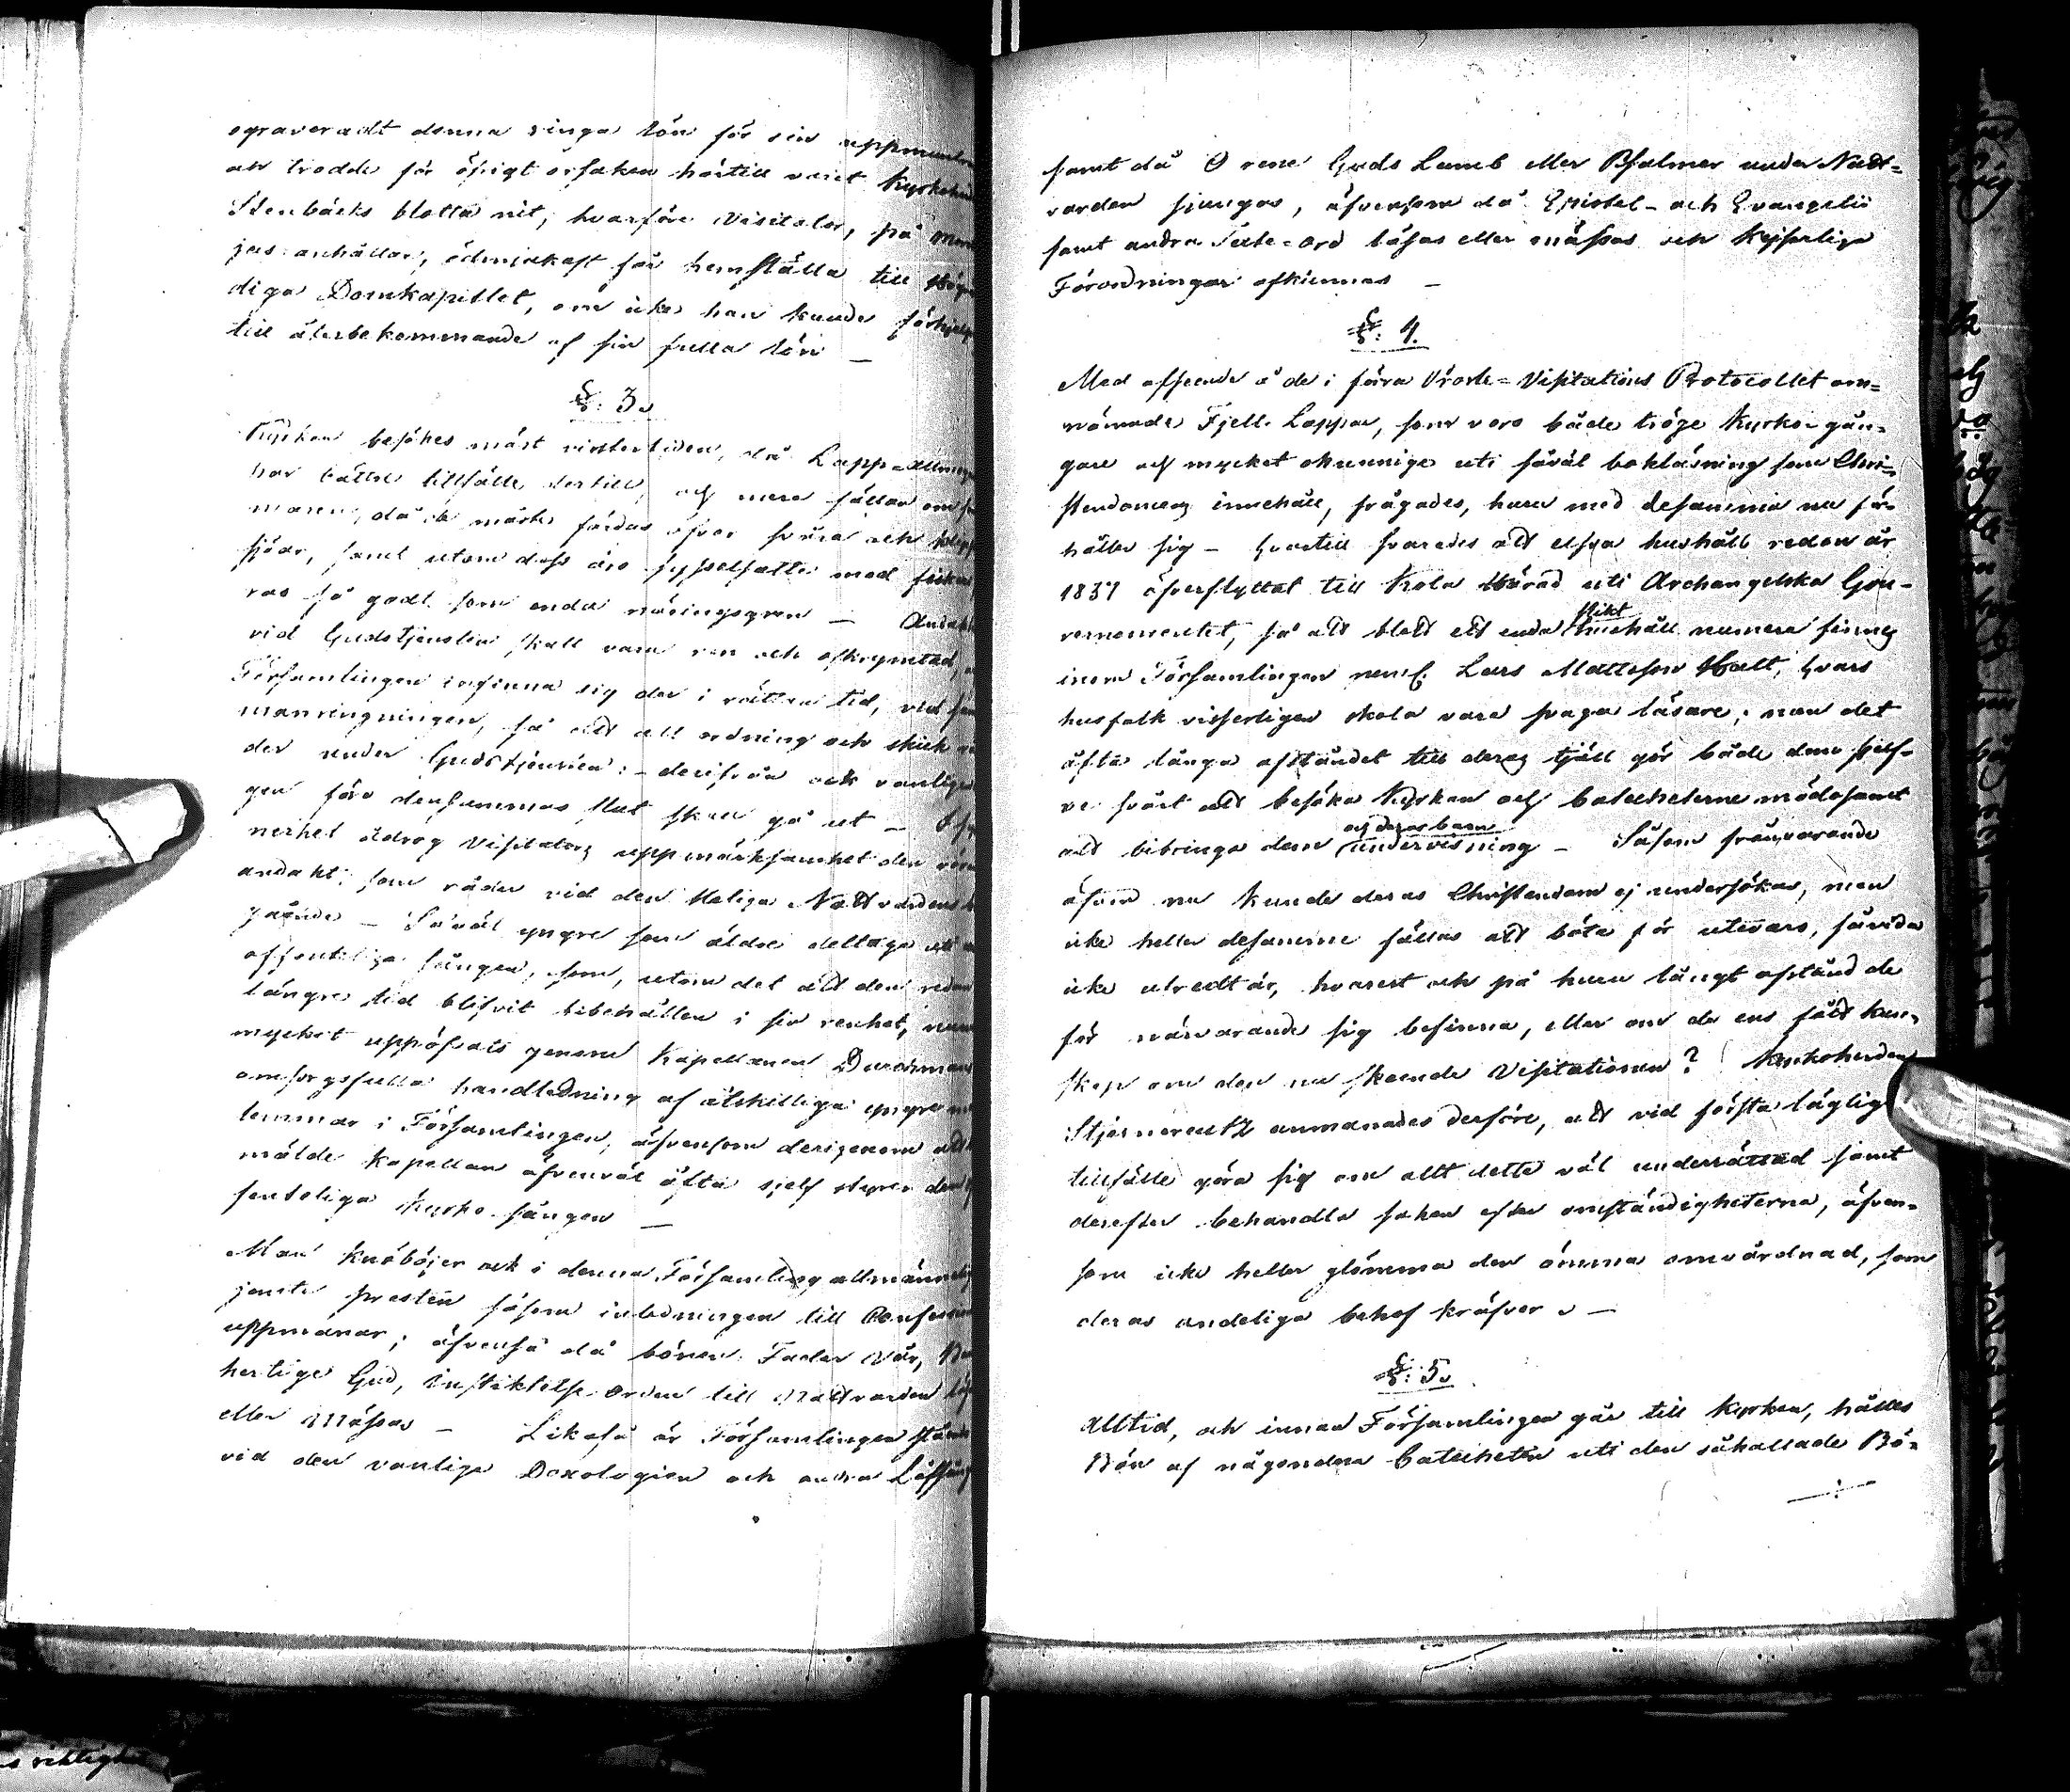 ograveradt denna ringa lön för sin uppmuntran
och trodde för öfrigt orsaken härtill varit Kyrkoherd
Stenbäcks blotta nit, hvarföre Visitator, på
jus anhållan, ödmjukast får hemställa till Högvör
diga Domkapitlet, om icke han kunde förhjelpas
till återbekommande af sin fulla lön —
§: 3.
Kyrkan besökes mäst vintertiden, då Lapp-allmogen
har bättre tillfälle dertill, och mera sällan om som
maren, då de måste färdas öfver svåra och
sjöar, samt utom dess äro sysselsatte med fiske
ras så godt som enda näringsgren — Andakten
vid Gudstjensten skall vara ren och oskrymtad,
Församlingen infinna sig der i rättan tid, vid sam
manringningen, så att all ordning och skick
der under Gudstjensten: - derifrån ock vanligen
gen före densammas slut skall gå ut —
nerhet ådrog Visitators uppmärksamhet den
andakt, som råder vid den Heliga Nattvardens
gående — Såväl yngre som äldre deltaga uti
offenteliga sången, som, utom det att den redan
längre tid blifvit bibehållen i sin renhet,
mycket uppöfvats genom Kapellanen Durchmans
omsorgsfulla handledning af åtskilliga yngre
lemmar i Församlingen, äfvensom derigenom att
mälde Kapellan äfvenväl ofta sjelf styrer den
fenteliga Kyrko-sången —
Man knäböjer ock i denna Församling allmänneligen
jemte presten såsom inledningen till
uppmanar; äfvenså då bönen: Fader Vår,
hertige Gud, Instiktelse-Orden till Nattvarden
eller Mässas — Likaså är Församlingen stående
vid den vanliga Doxologien och andra Lofsång
samt då O rene Guds Lamb eller Psalmer under Natt=
varden sjunges, äfvensom då Epistel- och Evangelii
samt andra Texte-ord läsas eller mässas och Kejserliga
Förordningar afkunnas —
§: 4.
Med afseende å de i förra Prosts-Visitations Protocollet om=
nämnde Fjell-Lappar, som voro både tröge Kyrko-gån-
gare och mycket okunnige uti såväl bokläsning som Chri-
stendomens innehåll, frågades, huru med desamma nu för-
håller sig — hvartill svarades att elfva hushåll redan år
1837 öfverflyttat till Kola Härad uti Archangelska Gou-
vernementet, så att blott ett enda slikt hushåll numera finnes
inom Församlingen neml. Lars Mattsson Halt, hvars
husfolk visserligen skola vara svaga läsare; men det
ofta långa afståndet till deras tjäll gör både dem sjelf-
ve svårt att besöka Kyrkan och Catecheterne mödosamt
att bibringa dem och deras barn undervisning — Såsom frånvarande
äfven nu kunde deras Christendom ej undersökas, men
icke heller desamme fällas att böta för utevaro, såvida
icke utredt är, hvarest och på huru långt afstånd de
för närvarande sig befinna, eller om de ens fått kun-
skap om den nu skeende Visitationen? Kyrkoherden
Stjernereutz anmanades derföre, att vid första läglig
tillfälle göra sig om allt detta väl underrättad samt
derefter behandla saken efter omständigheterna, äfven-
som icke heller glömma den ömma omvårdnad, som
deras andeliga behof kräfver. —
§: 5.
Alltid, och innan Församlingen går till Kyrkan, hålles
Bön af någondera Catecheten uti den såkallade Bö-